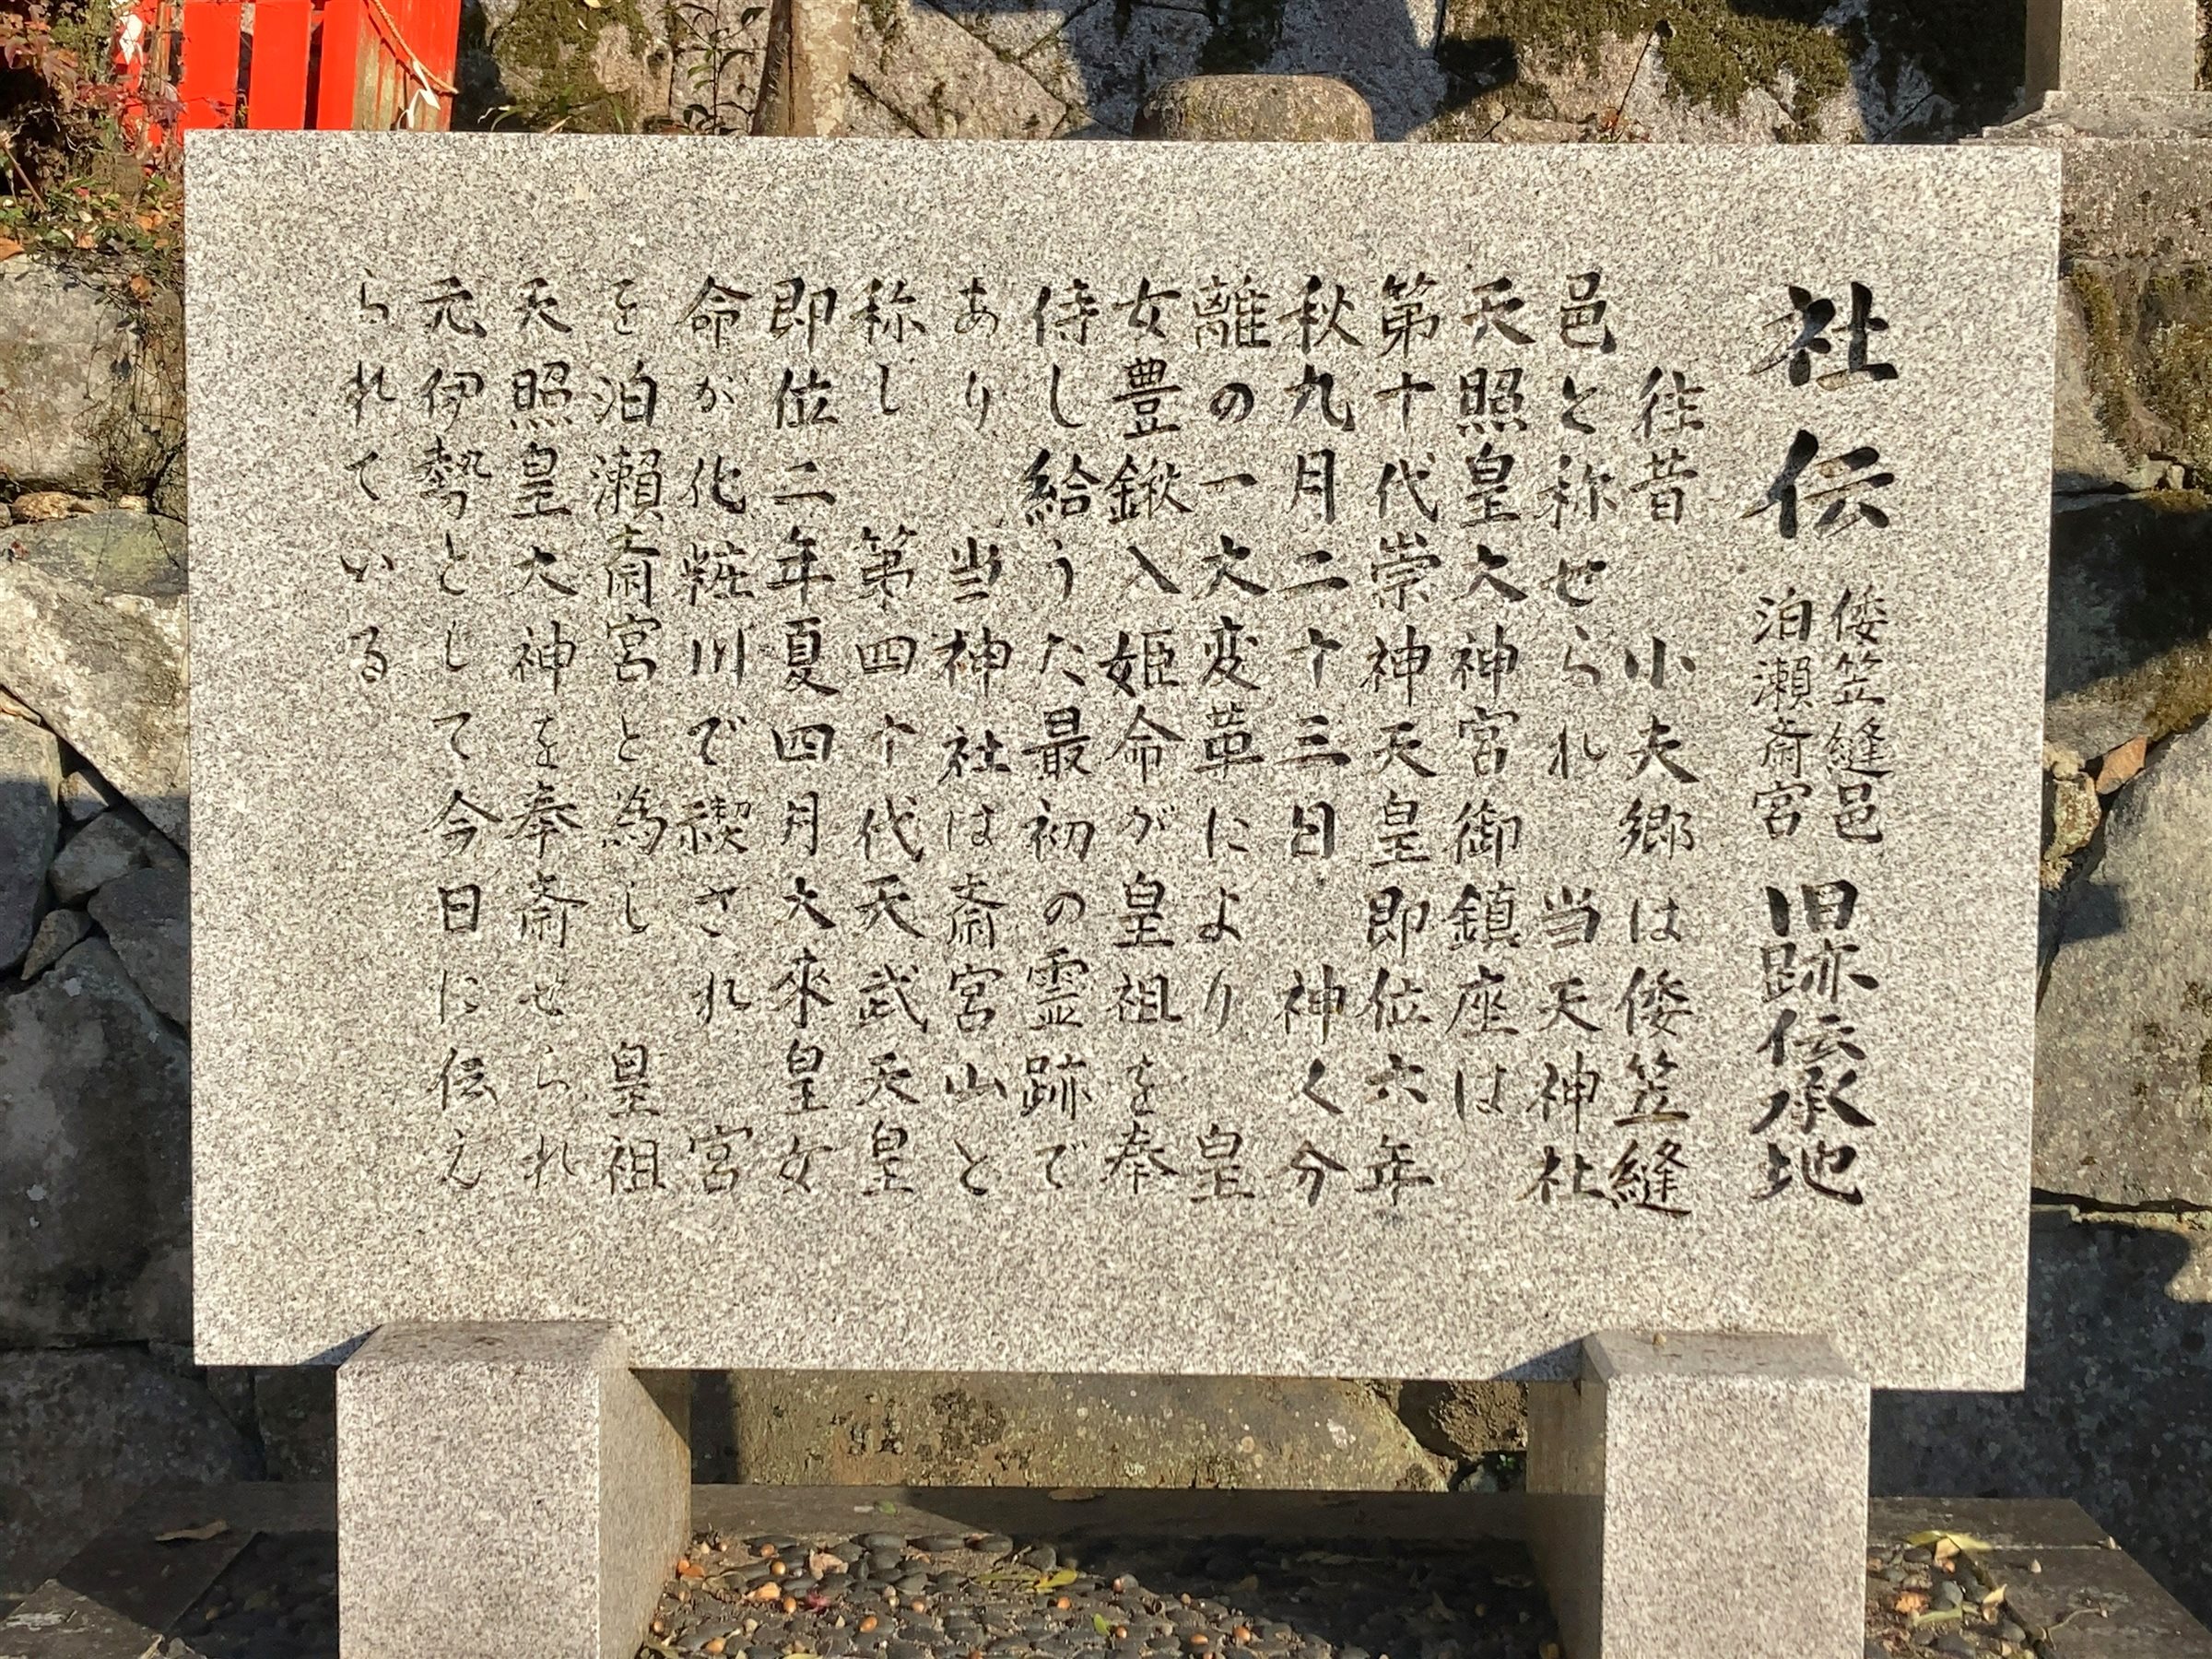 社伝 倭笠縫邑 泊瀬斎宮 旧跡伝承地
往昔 小夫郷は倭笠縫
邑と称せられ 当天神社
天照皇大神宮御鎮座は
第十代崇神天皇即位六年
秋九月二十三日 神く分
離の一大変革により 皇
女豊鍬入姫命が皇祖を奉
侍し給うた最初の霊跡で
あり 当神社は斎宮山と
称し 第四十代天武天皇
即位二年夏四月大來皇女
命が化粧川で禊され 宮
を泊瀬斎宮と為し 皇祖
天照皇大神を奉斎せられ
元伊勢として今日に伝え
られている